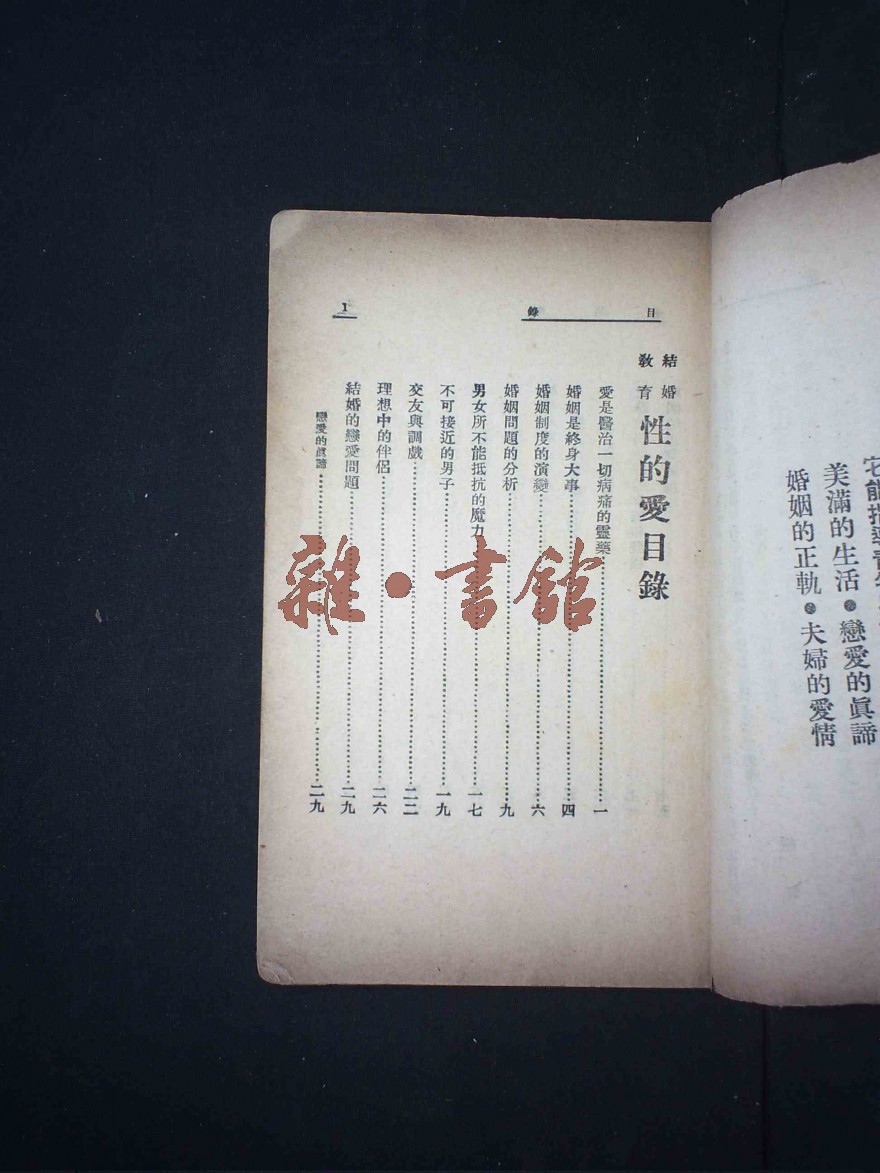 它能指導青
美滿的生活●戀愛的眞諦
婚姻的正軌●夫婦的愛情
目錄
1
結婚教育
性的愛目錄
愛是醫治一切病痛的靈藥……一
婚姻是終身大事……四
婚姻制度的演變……六
婚姻問題的分析……九
男女所不能抵抗的魔力……一七
不可接近的男子……一九
交友與調戲……二二
理想中的伴侶……二六
結婚的戀愛問題……二九
戀愛的眞諦……二九
雜·書館